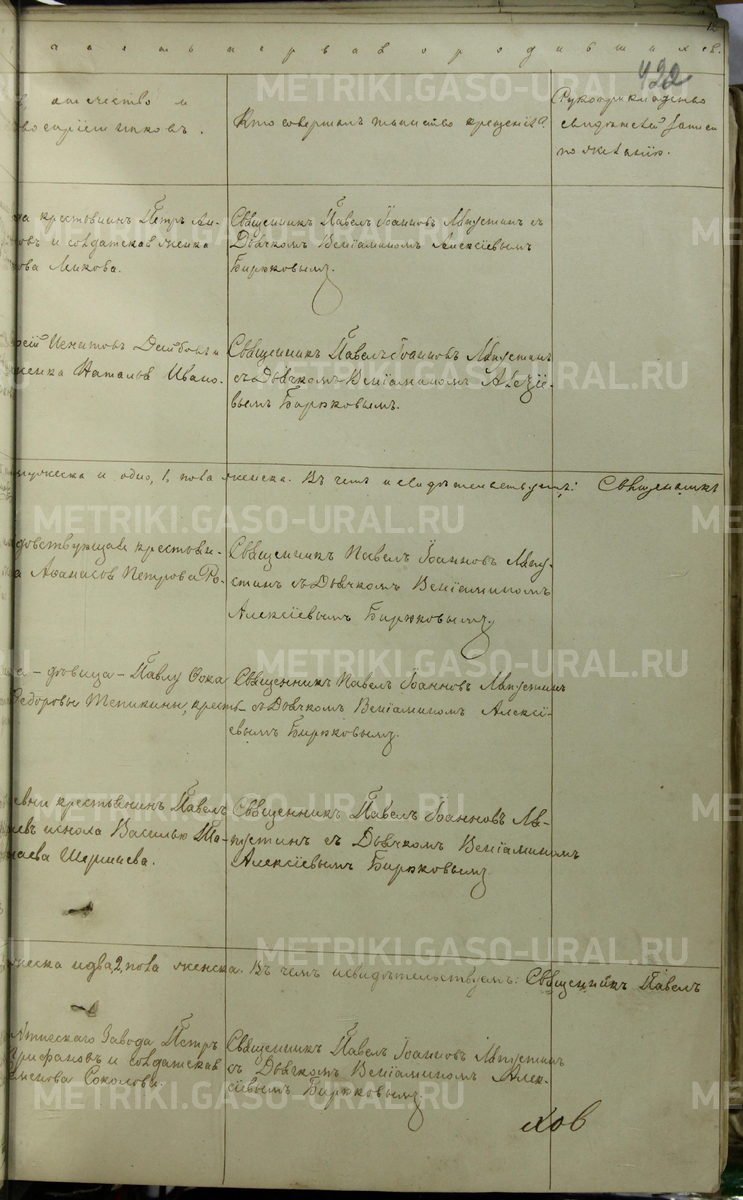 часть первая о родившихся.
422
отечество и
восприемниковъ.
Кто совершалъ таинство крещенія?
Рукоприкладство
свидѣтелей записи
по желанію.
крестьянинъ Петръ
овъ и солдатская женка
Священникъ Павелъ Іоанновъ Августинъ съ
Дьячкомъ Веніаминомъ Алексіевымъ
Бирюковымъ.
Игнатовъ
женка Наталья Ивано-
Священникъ Павелъ Іоанновъ Августинъ
съ Дьячкомъ Веніаминомъ Алексіе-
вымъ Бирюковымъ.
мужеска и одно, 1, пола женска. Въ чемъ и свидѣтельствуетъ: Священникъ
довствующая крестьян-
Афанасья Петрова Ро-
Священникъ Павелъ Іоанновъ Авгу-
стинъ съ Дьячкомъ Веніаминомъ
Алексіевымъ Бирюковымъ
дѣвица Павла
Ѳедоровы
Священникъ Павелъ Іоанновъ Августинъ
съ Дьячкомъ Веніаминомъ Алексі-
евымъ Бирюковымъ.
вни крестьянинъ Павелъ
Василью
Священникъ Павелъ Іоанновъ Ав-
густинъ съ Дьячкомъ Веніаминомъ
Алексіевымъ Бирюковымъ
жеска и два, 2, пола женска. Въ чемъ и свидѣтельствуетъ: Священникъ Павелъ
Завода Петръ
рифановъ и солдатская
менова Соколова.
Священникъ Павелъ Іоанновъ Августинъ
съ Дьячкомъ Веніаминомъ Алек-
сіевымъ Бирюковымъ
ховъ
METRIKI.GASO-URAL.RU